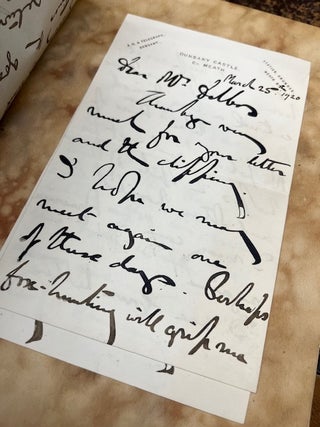 DUNSANY CASTLE
Co. MEATH
March 25th 1920
Dear Mr.
Thank you very
much for your letter
and the clipping.
I hope we may
meet again one
of these days. Perhaps
fox-hunting will grip me